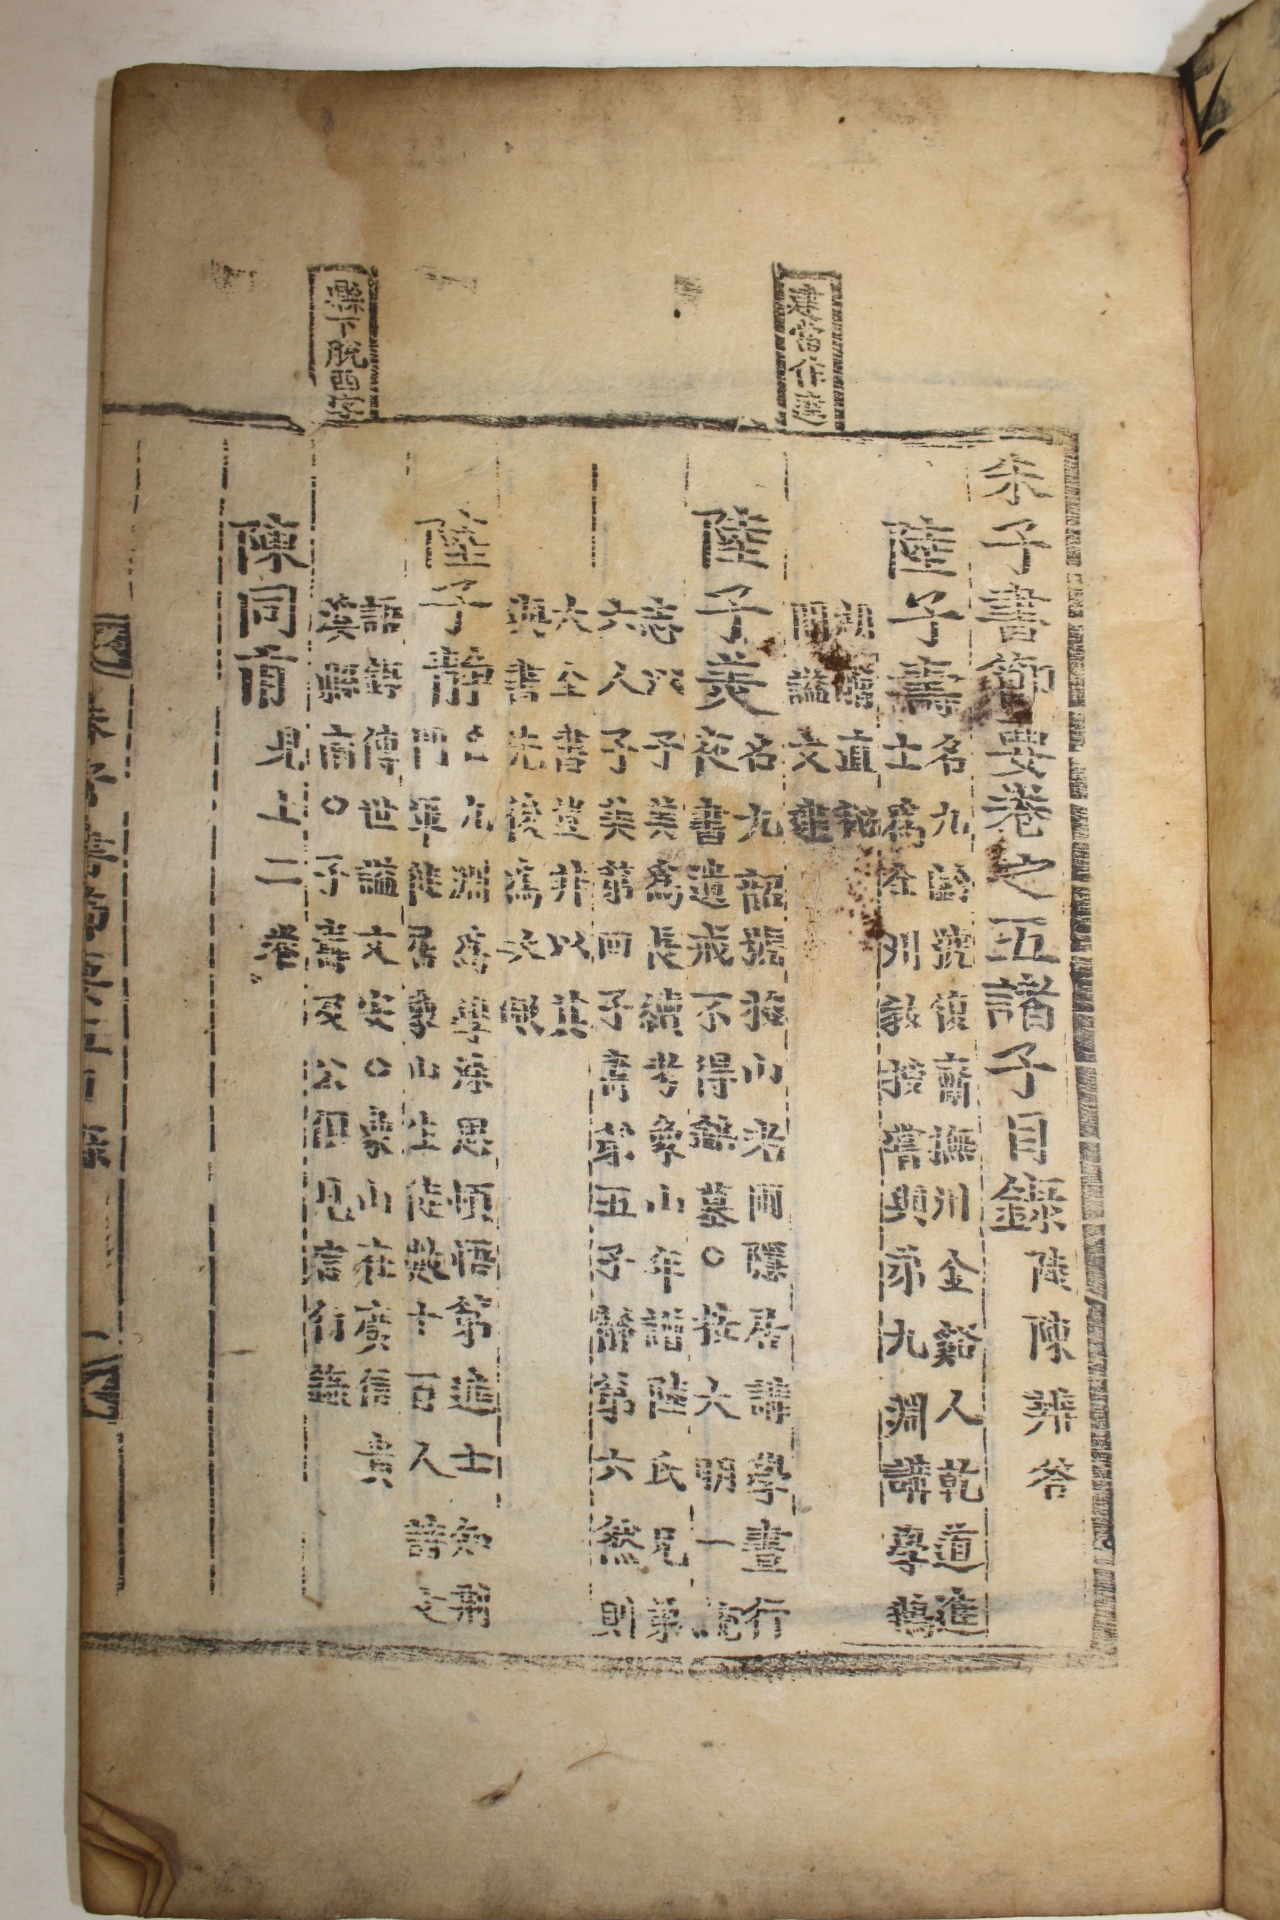 朱子書節要卷之五諸子目錄 陸陳辨答
建當作達
陸子壽 名九齡號復齋撫州金谿人乾道進
士爲全州敎授嘗與弟九淵講學鵝
湖贈直秘
閣謚文建
陸子美 名九韶號梭山老圃隱居講學晝行
夜書遺戒不得銘墓○按大明一統
志以子美爲長續考象山年譜陸氏兄弟
六人子美第四子壽第五子靜第六然則
大全書並以其
與書先後爲次歟
陸子靜 名九淵爲學深思頓悟第進士知荊
門軍後居象山生徒數十百人
縣下脫西字
語錄傳世謚文安○象山在廣信貴
溪縣南○子壽及公但見
陳同甫 見上二卷